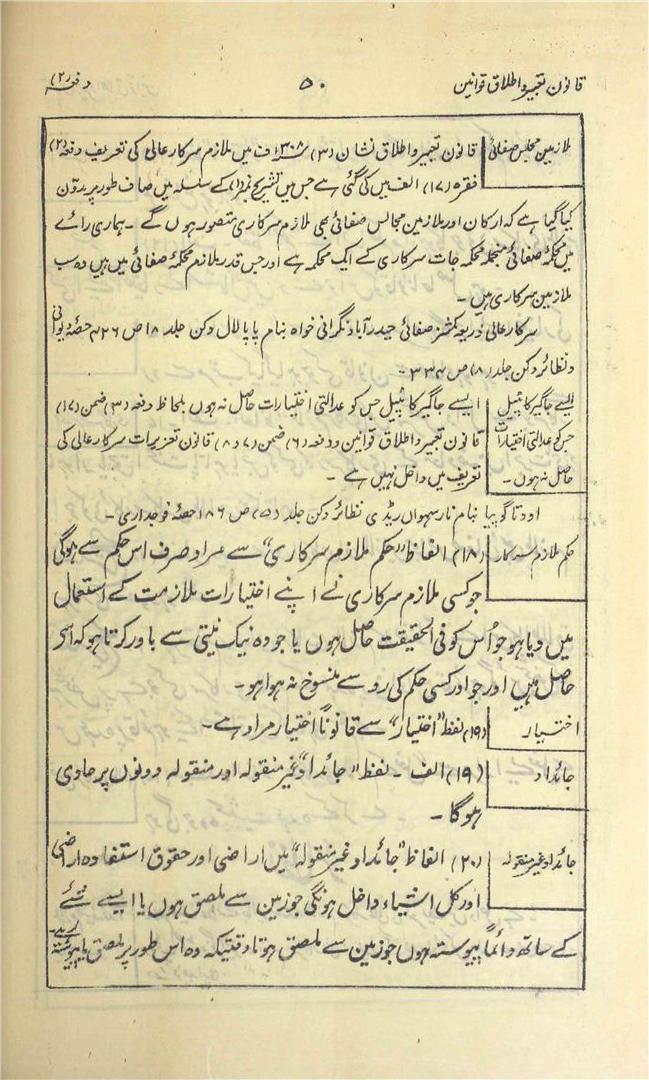 قانون تعبیر و اطلاق قوانین ۵۰ دفعہ (۲)
ملازمین مجلس صفائی قانون تعبیر و اطلاق نشان (۳) ۱۳۰۸ف میں ملازم سرکار عالی کی تعریف دفعہ (۲)
فقرہ (۱۷) الف میں کی گئی ہے جس میں تشریح نمبر (۱) کے سلسلہ میں صاف طور پر بدون
کیا گیا ہے کہ ارکان اور ملازمین مجالس صفائی بھی ملازم سرکاری متصور ہوں گے ۔ ہماری رائے
میں محکمۂ صفائی منجملہ محکمہ جات سرکاری کے ایک محکمہ ہے اور جس قدر ملازم محکمۂ صفائی میں ہیں وہ سب
ملازمین سرکاری ہیں ۔
سرکار عالی ذریعہ کمشنر صفائی حیدرآباد نگرانی خواہ بنام پاپا لال دکن جلد ۱۸ ص ۴۲۶ حصۂ دیوانی
و نظائر دکن جلد (۸) ص ۳۳۴ ۔
ایسے جاگیر کا پٹیل ایسے جاگیر کا پٹیل جس کو عدالتی اختیارات حاصل نہ ہوں بلحاظ دفعہ (۳) ضمن (۱۷)
جس کو عدالتی اختیارات قانون تعبیر و اطلاق قوانین و دفعہ (۶) ضمن (۷ و ۸) قانون تعزیرات سرکار عالی کی
حاصل نہ ہوں ۔ تعریف میں داخل نہیں ہے ۔
اودتا گوپیا بنام نارسہواں ریڈی نظائر دکن جلد (۵) ص ۱۸۶ حصۂ فوجداری ۔
حکم ملازم سرکار (۱۸) الفاظ "حکم ملازم سرکاری" سے مراد صرف اس حکم سے ہوگی
جو کسی ملازم سرکاری نے اپنے اختیارات ملازمت کے استعمال
میں دیا ہو جو اُس کو فی الحقیقت حاصل ہوں یا جو وہ نیک نیتی سے باور کرتا ہو کہ اسے
حاصل ہیں اور جو اور کسی حکم کی رو سے منسوخ نہ ہوا ہو ۔
اختیار (۱۹) لفظ "اختیار" سے قانوناً اختیار مراد ہے ۔
جائداد (۱۹) الف ۔ لفظ "جائداد" غیر منقولہ اور منقولہ دونوں پر حاوی
ہوگا ۔
جائداد غیر منقولہ (۲۰) الفاظ "جائداد غیر منقولہ" میں اراضی اور حقوق استفادہ اراضی
اور کل اشیاء داخل ہونگی جو زمین سے ملصق ہوں یا ایسے شئے
کے ساتھ دائماً پیوستہ ہوں جو زمین سے ملصق ہو تاوقتیکہ وہ اس طور پر ملصق یا پیوستہ رہے